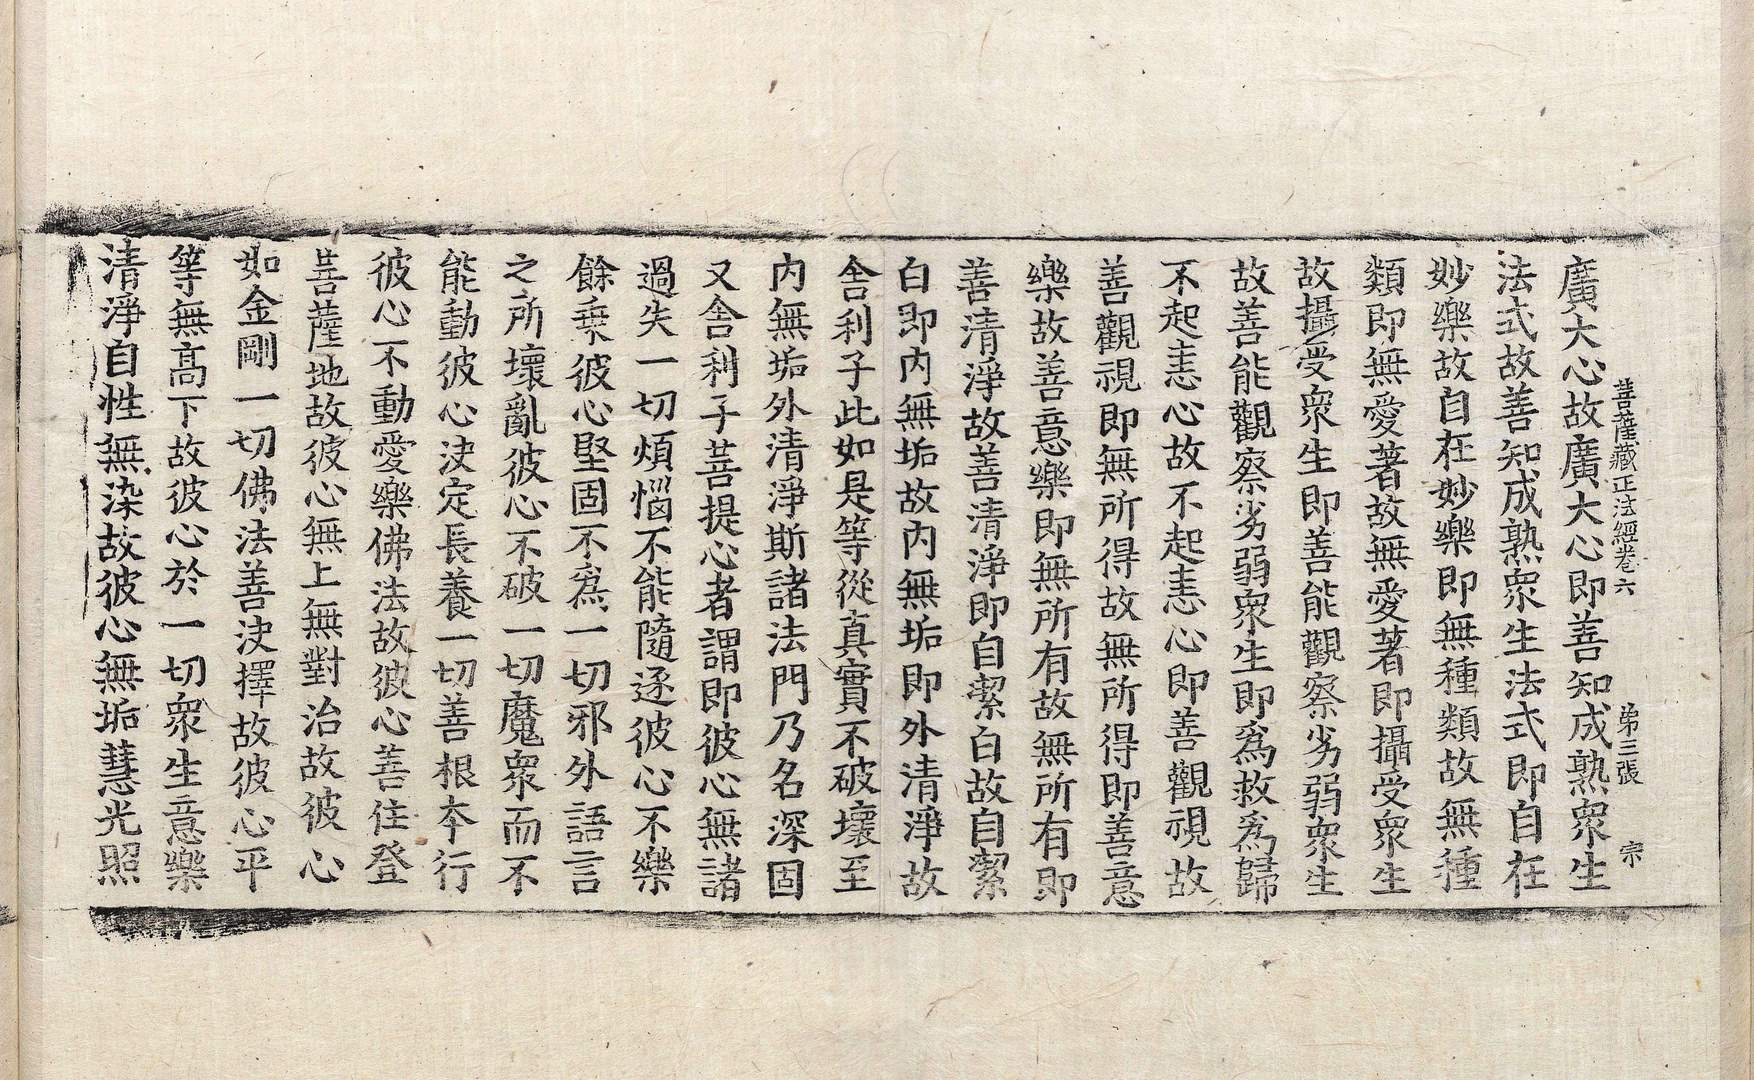 菩薩藏正法經卷六　第三張　宗
廣大心故廣大心即善知成熟衆生
法式故善知成熟衆生法式即自在
妙樂故自在妙樂即無種類故無種
類即無愛著故無愛著即攝受衆生
故攝受衆生即善能觀察劣弱衆生
故善能觀察劣弱衆生即爲救爲歸
不起恚心故不起恚心即善觀視故
善觀視即無所得故無所得即善意
樂故善意樂即無所有故無所有即
善清淨故善清淨即自潔白故自潔
白即內無垢故內無垢即外清淨故
舍利子此如是等從真實不破壞至
內無垢外清淨斯諸法門乃名深固
又舍利子菩提心者謂即彼心無諸
過失一切煩惱不能隨逐彼心不樂
餘乘彼心堅固不爲一切邪外語言
之所壞亂彼心不破一切魔衆而不
能動彼心決定長養一切善根本行
彼心不動愛樂佛法故彼心善住登
菩薩地故彼心無上無對治故彼心
如金剛一切佛法善決擇故彼心平
等無高下故彼心於一切衆生意樂
清淨自性無染故彼心無垢慧光照